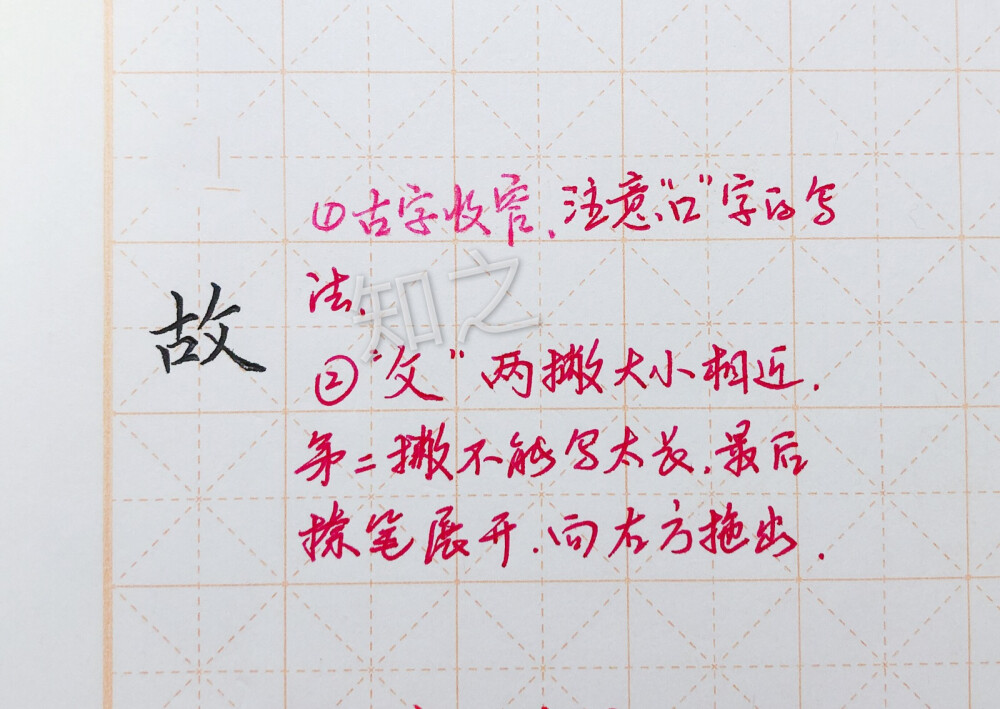 ①古字收窄、注意"口"字的写
法、
故
②"攵"两撇大小相近.
第二撇不能写太长.最后
捺笔展开.向右方拖出.
知之